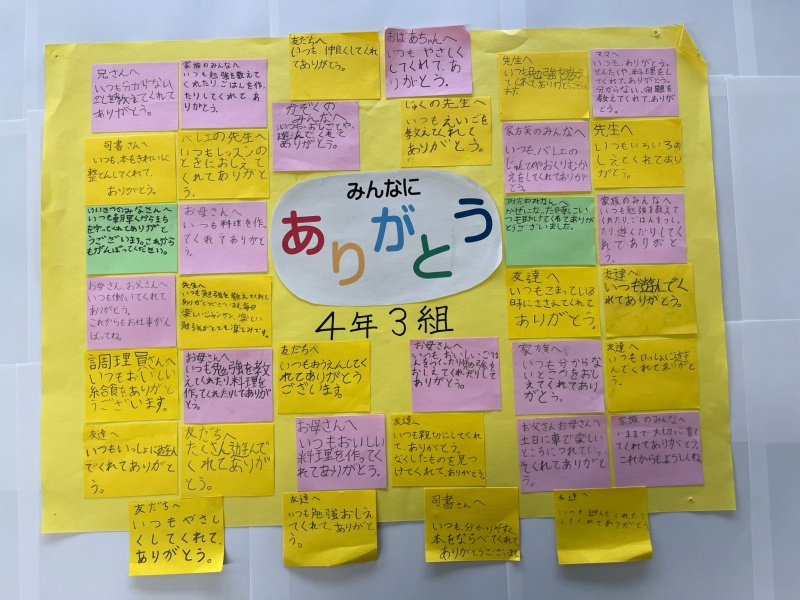 兄さんへ
いつも分からない
ありがとう。
家族のみんなへ
いつも勉強を教えて
くれたり、ごはんを作っ
たりしてくれて、あり
がとう。
友だちへ
いつも仲良くしてくれ
てありがとう。
おばあちゃんへ
いつもやさしく
してくれて、あり
がとう。
先生へ
いつも勉強を教え
てくれてありがとうござい
ます
ママへ
いつも、ありがとう。
せんたくや、料理をし
てくれて、ありがとう。
分からない、問題を
教えてくれて、ありが
とう。
かぞくの
みんなへ
ありがとう。
じゅくの先生へ
いつもえいごを
教えてくれて
ありがとう。
司書さんへ
いつも、本をきれいに
整とんしてくれて、
ありがとう。
バレエの先生へ
いつもレッスンの
ときにおしえて
くれてありがと
う。
家族のみんなへ
いつも、バレエの
かえをしてくれて
ありがとう
先生へ
いつもいろいろお
しえてくれてあり
がとう。
いつも朝早くからまち
を守ってくれてありがと
うございます。これから
もがんばってください。
お母さんへ
いつも料理を作っ
てくれてありがと
う。
みんなに
ありがとう
4年3組
かぜになった時に
いつも助けてくれてあり
がとうございました。
家族のみんなへ
いつも勉強を教えて
くれたり、ごはんをつくっ
たり遊んだりしてく
れてありがとう。
お母さん、お父さんへ
いつも働いてくれて
ありがとう。
これからもお仕事がん
ばってね。
先生へ
いつも勉強を教えてくれて
ありがとうございます。毎日
楽しいジャンケン、楽しい
勉強がとても楽しみです。
友達へ
いつもこまっている
時にささえてくれて
ありがとう。
友達へ
いつも遊んでく
れてありがとう。
調理員さんへ
いつもおいしい
給食をありがと
うございます。
お母さんへ
いつも勉強を教
えてくれたり料理を
作ってくれたりしてありが
とう。
友だちへ
いつもおうえんしてく
れてありがとう
ございます。
お母さんへ
いつも、おいしいごは
んをつくったり勉強を
おしえてくれたりして
ありがとう。
家族へ
いつも分からな
いところをおし
えてくれてありが
とう。
友達へ
いつもいっしょに遊ん
でくれてありがと
う。
友達へ
いつもいっしょに遊ん
でくれてありがとう
。
友だちへ
たくさん遊んで
くれてありがと
う。
お母さんへ
いつもおいしい
料理を作ってく
れてありがとう。
友達へ
いつも親切にしてくれ
て、ありがとう。
なくしたものを見つ
けてくれて、ありがとう。
お父さんお母さんへ
土日に車で楽しい
ところにつれていっ
てくれてありがとう
家族のみんなへ
いままで大切に育て
てくれてありがとう。
これからもよろしくね。
友だちへ
いつもやさし
くしてくれて、
ありがとう。
友達へ
いつも勉強おしえ
てくれて、ありがと
う。
司書さんへ
いつも、分かりやすく
本をならべてくれて
ありがとうございます
友達へ
いつも遊んでくれたり
してくれてありがとう